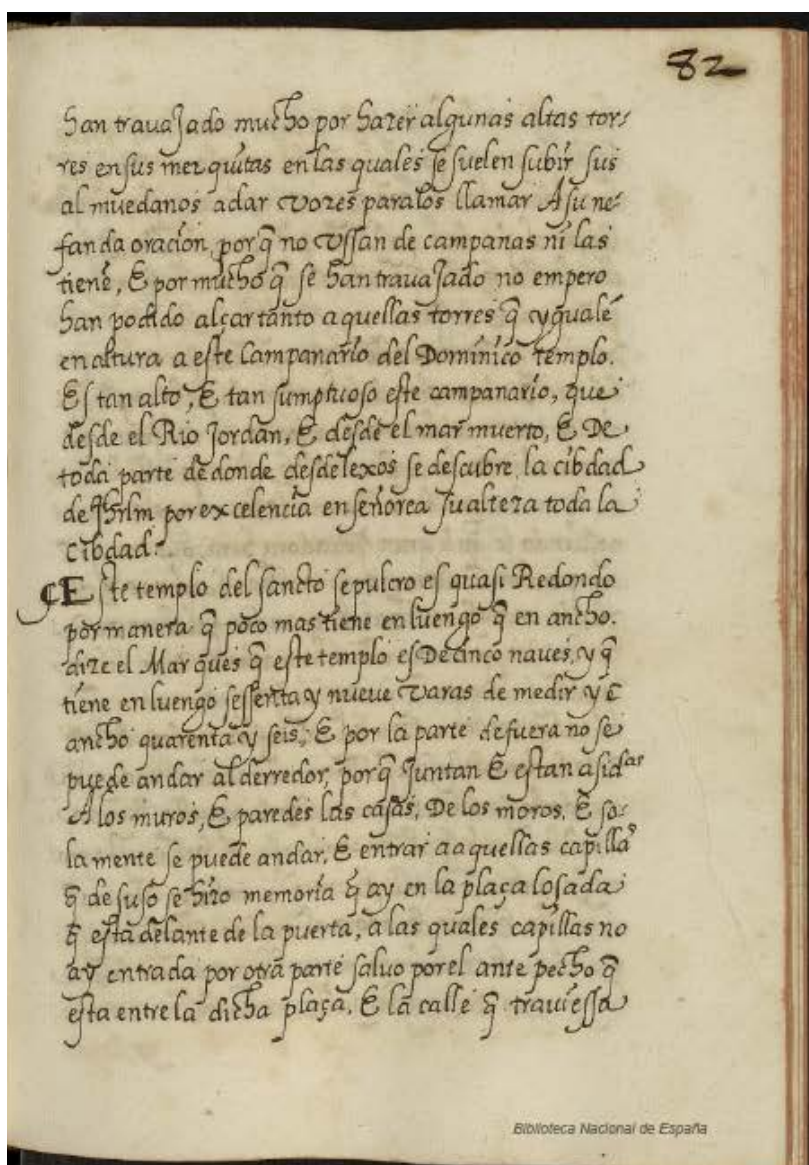 82
han trauaJado mucho por hazer algunas altas tor/
res en sus mezquitas en las quales se suelen subir sus
almuedanos a dar vozes para los llamar A su ne/
fanda oracion, porq̃ no vssan de campanas ni las
tienẽ, E por mucho q̃ se han trauaJado no empero
han podido alçar tanto aquellas torres q̃ ygualẽ
en altura a este Campanario del Dominico templo.
Es tan alto, E tan sumptuoso este campanario, que
desde el Rio Jordan, E desde el mar muerto, E De
toda parte de donde desde lexos se descubre la cibdad
de Jhrlm por excelencia enseñorea su alteza toda la
cibdad.
¶ Este templo del sancto sepulcro es quasi Redondo
por manera q̃ poco mas tiene en luengo q̃ en ancho.
dize el Marques q̃ este templo es De cinco naues, y q̃
tiene en luengo sessenta y nueue varas de medir y E
ancho quarenta y seis, E por la parte de fuera no se
puede andar al derredor, porq̃ Juntan E estan asidas
A los muros, E paredes las casas, De los moros, E so/
lamente se puede andar, E entrar a aquellas capillas
q̃ de suso se hizo memoria q̃ ay en la plaça losada
q̃ esta delante de la puerta, a las quales capillas no
ay entrada por otra parte saluo por el ante pecho q̃
esta entre la dicha plaça, E la calle q̃ trauiessa
Biblioteca Nacional de España